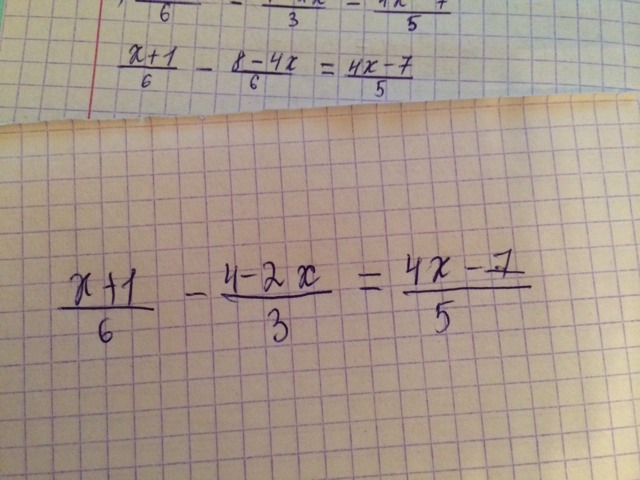 6 3 5
x+1/6 - 8-4x/6 = 4x-7/5
x+1/6 - 4-2x/3 = 4x-7/5